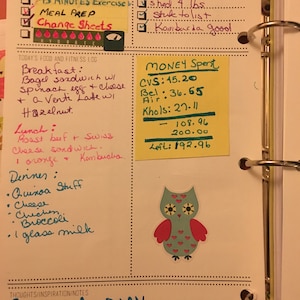 15 MINUTES Exercise
MEAL PREP
Change Sheets
shed 4 lbs
Stick to list
Kombucha good
TODAY'S FOOD AND FITNESS LOG
Breakfast:
Bagel sandwich w/
spinach egg & cheese
& a Venti Latte w/
Hazelnut
Lunch:
Roast beef & Swiss
cheese sandwich
1 orange & Kombucha
Dinner:
• Quinoa Stuff
• Cheese
• Chicken
• Broccoli
• 1 glass milk
MONEY Spent
CVS: 45.20
Bel Air: 36.65
Khols: 27.11
- 108.96
200.00
Left: 192.96
THOUGHTS/INSPIRATION/NOTES